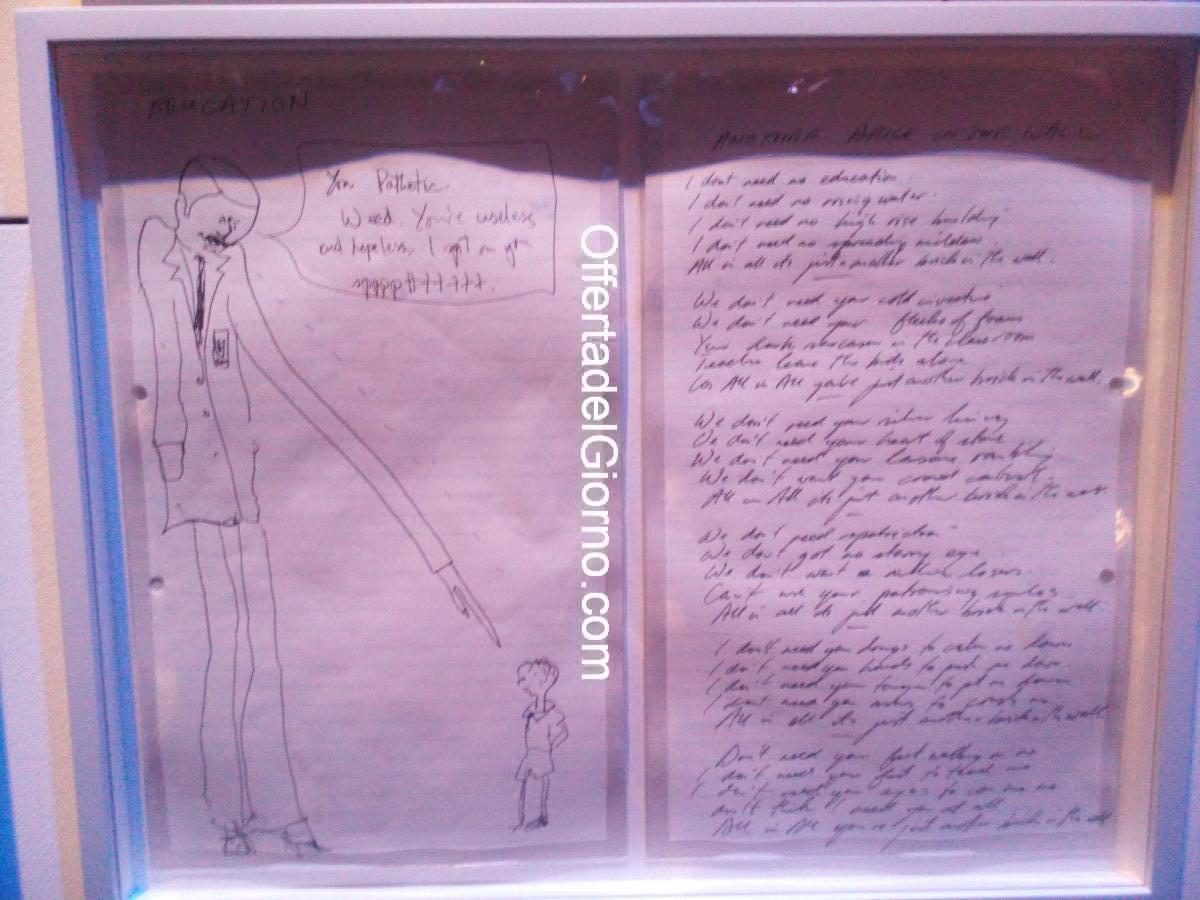 EDUCATION
You Pathetic
Weed. You're useless
and hopeless, I spit on you
OffertadelGiorno.com
ANOTHER BRICK IN THE WALL
I dont need no education
I don't need no rising water
I don't need no high rise building
I don't need no spreading mildew
All in all its just another brick in the wall.
We don't need your
We don't need your flecks of foam
Your dark sarcasm in the classroom
Teacher leave the kids alone
Cos All in All you're just another brick in the wall,
We don't need your silver lining
We don't need your heart of stone
We don't need your rambling
We don't want your
All in All its just another brick in the wall
We don't need
We don't got no starry eyes
We don't want no losers
Can't use your patronising
All in all its just another brick in the wall
I don't need your drugs to calm me down
I don't need your hands to push me down
I don't need your tongue to put me down
I dont need your to crush me
All in all its just another brick in the wall
Don't need your
I don't need your feet to tread me
I don't need your eyes to con me
don't think I need you at all
All in All you're just another brick in the wall